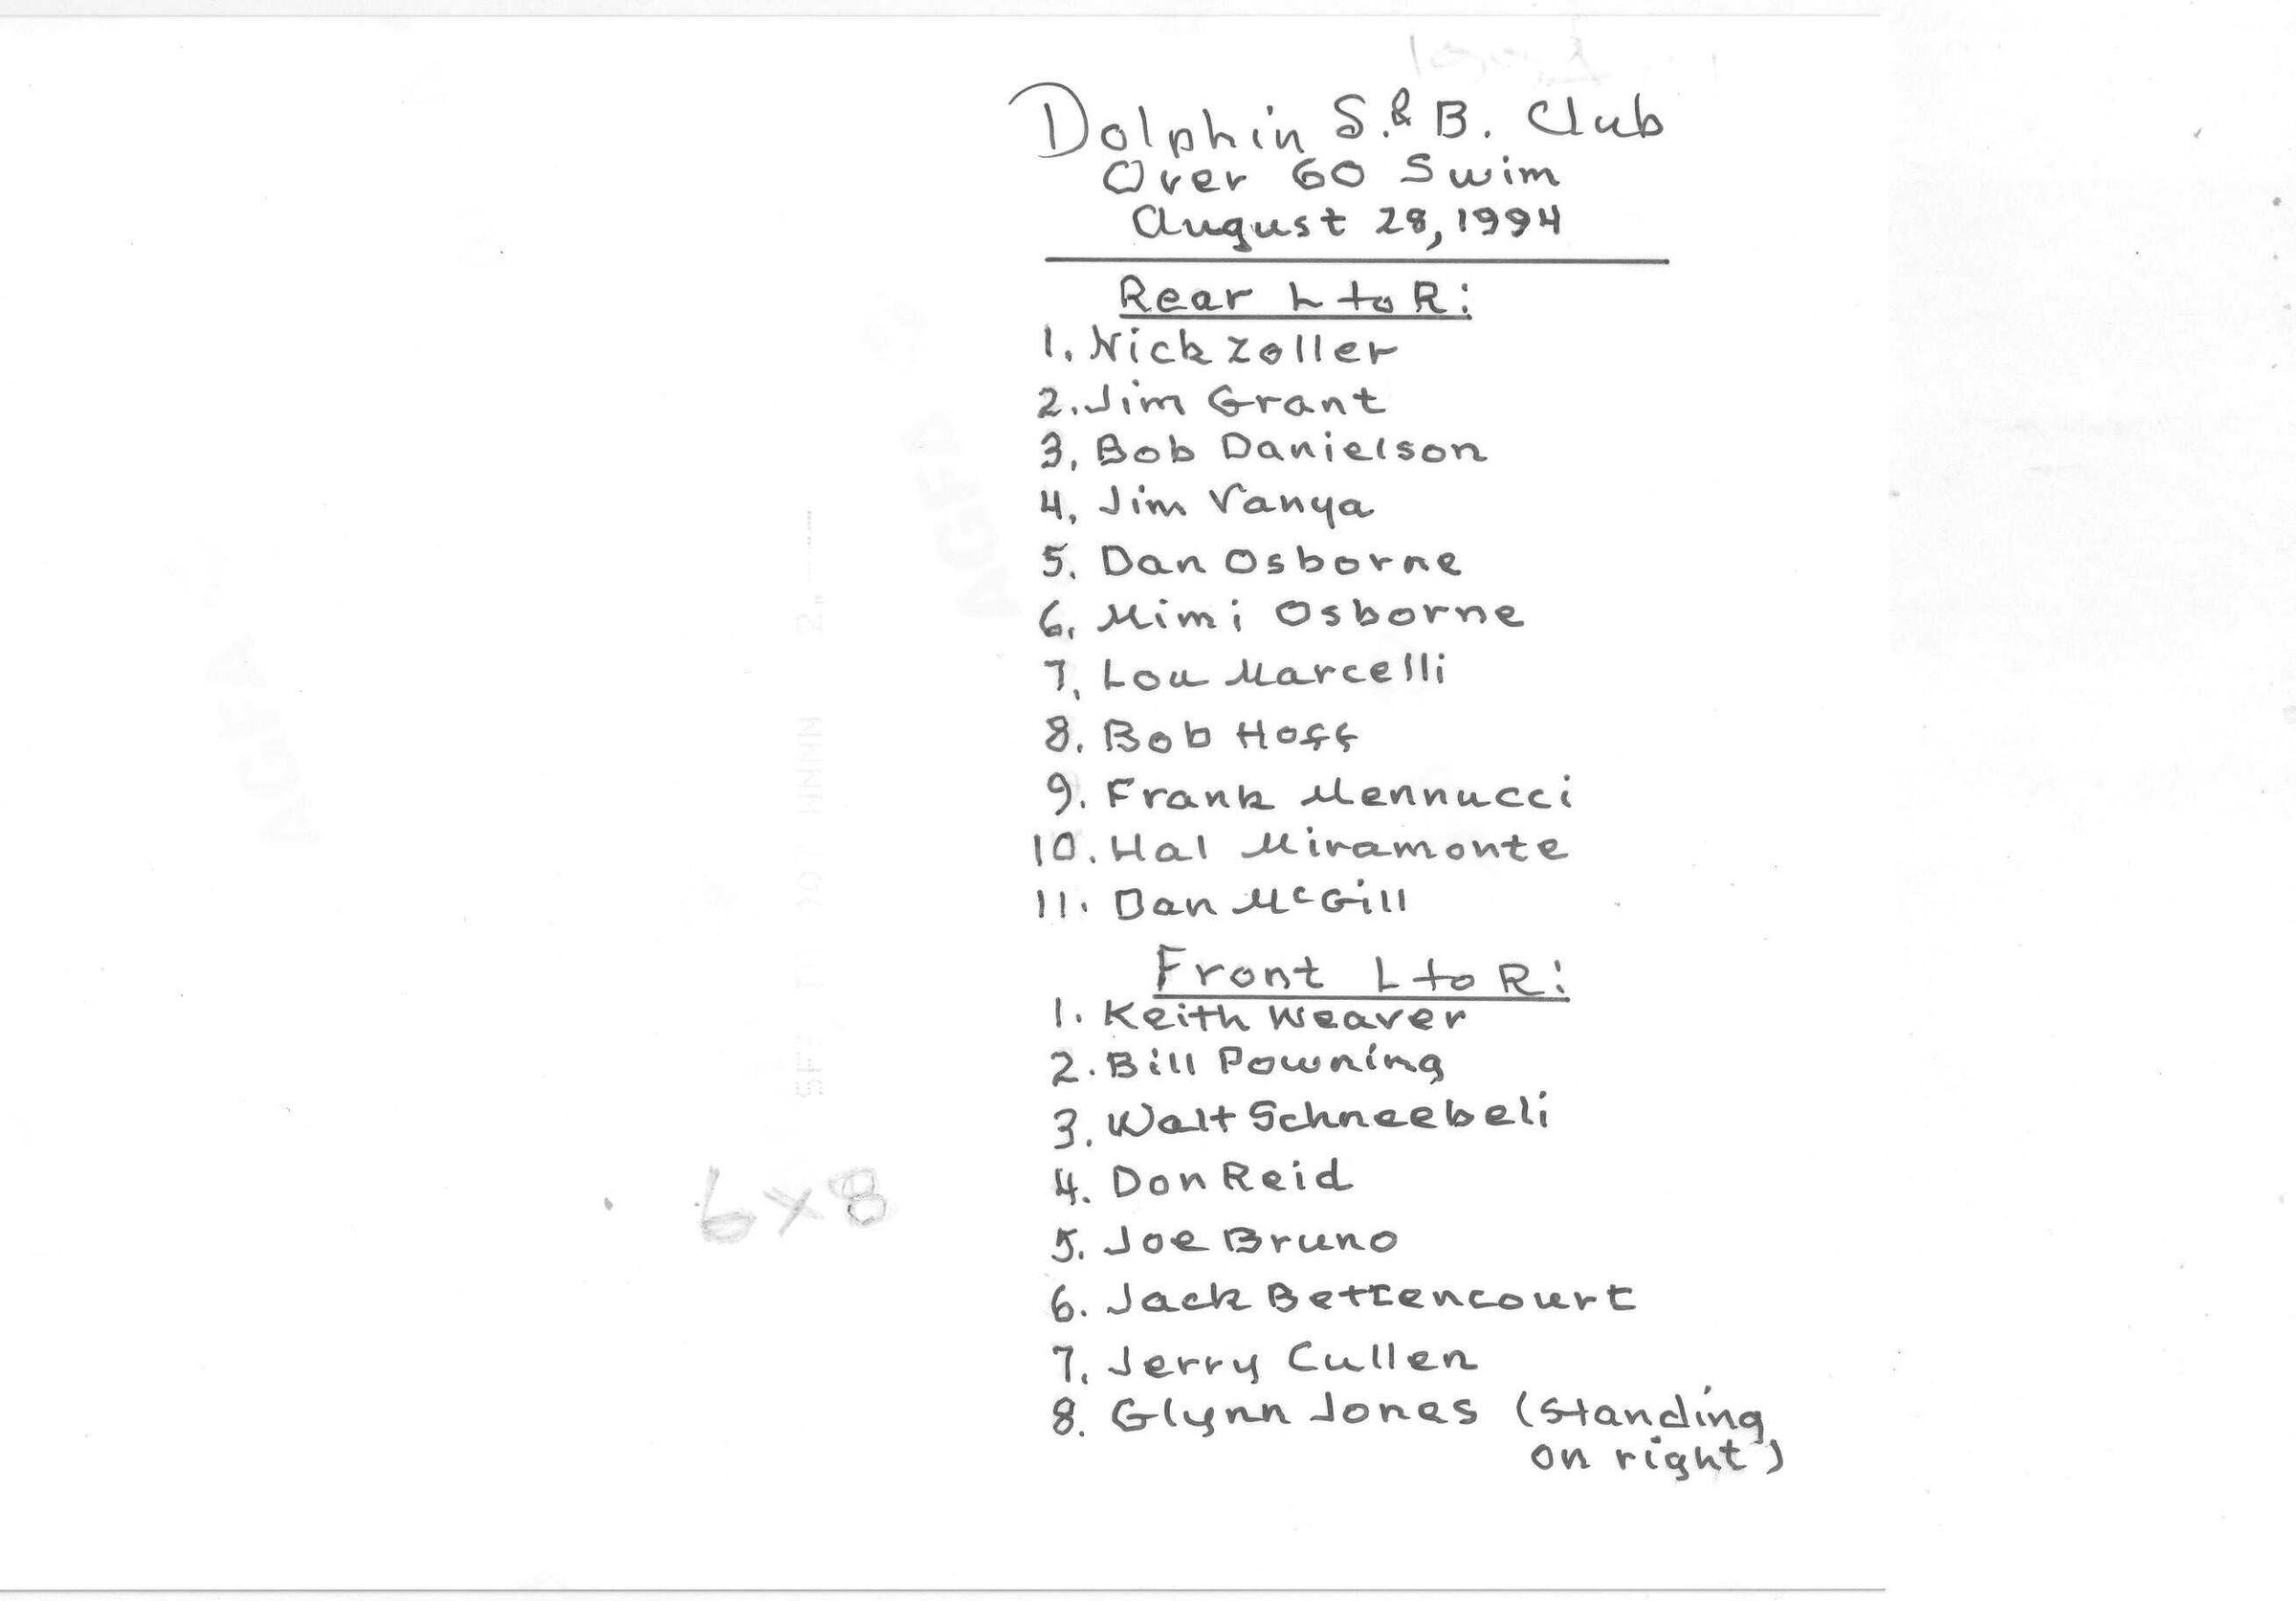 Dolphin S.&B. Club
Over 60 Swim
August 28, 1994
Rear L to R:
1. Nick Zoller
2. Jim Grant
3. Bob Danielson
4. Jim Vanya
5. Dan Osborne
6. Mimi Osborne
7. Lou Marcelli
8. Bob Hoff
9. Frank Mennucci
10. Hal Miramonte
11. Dan McGill
Front L to R:
1. Keith Weaver
2. Bill Powning
3. Walt Schneebeli
4. Don Reid
5. Joe Bruno
6. Jack Bettencourt
7. Jerry Cullen
8. Glynn Jones (standing
on right)
6x8
AGFA
AGFA